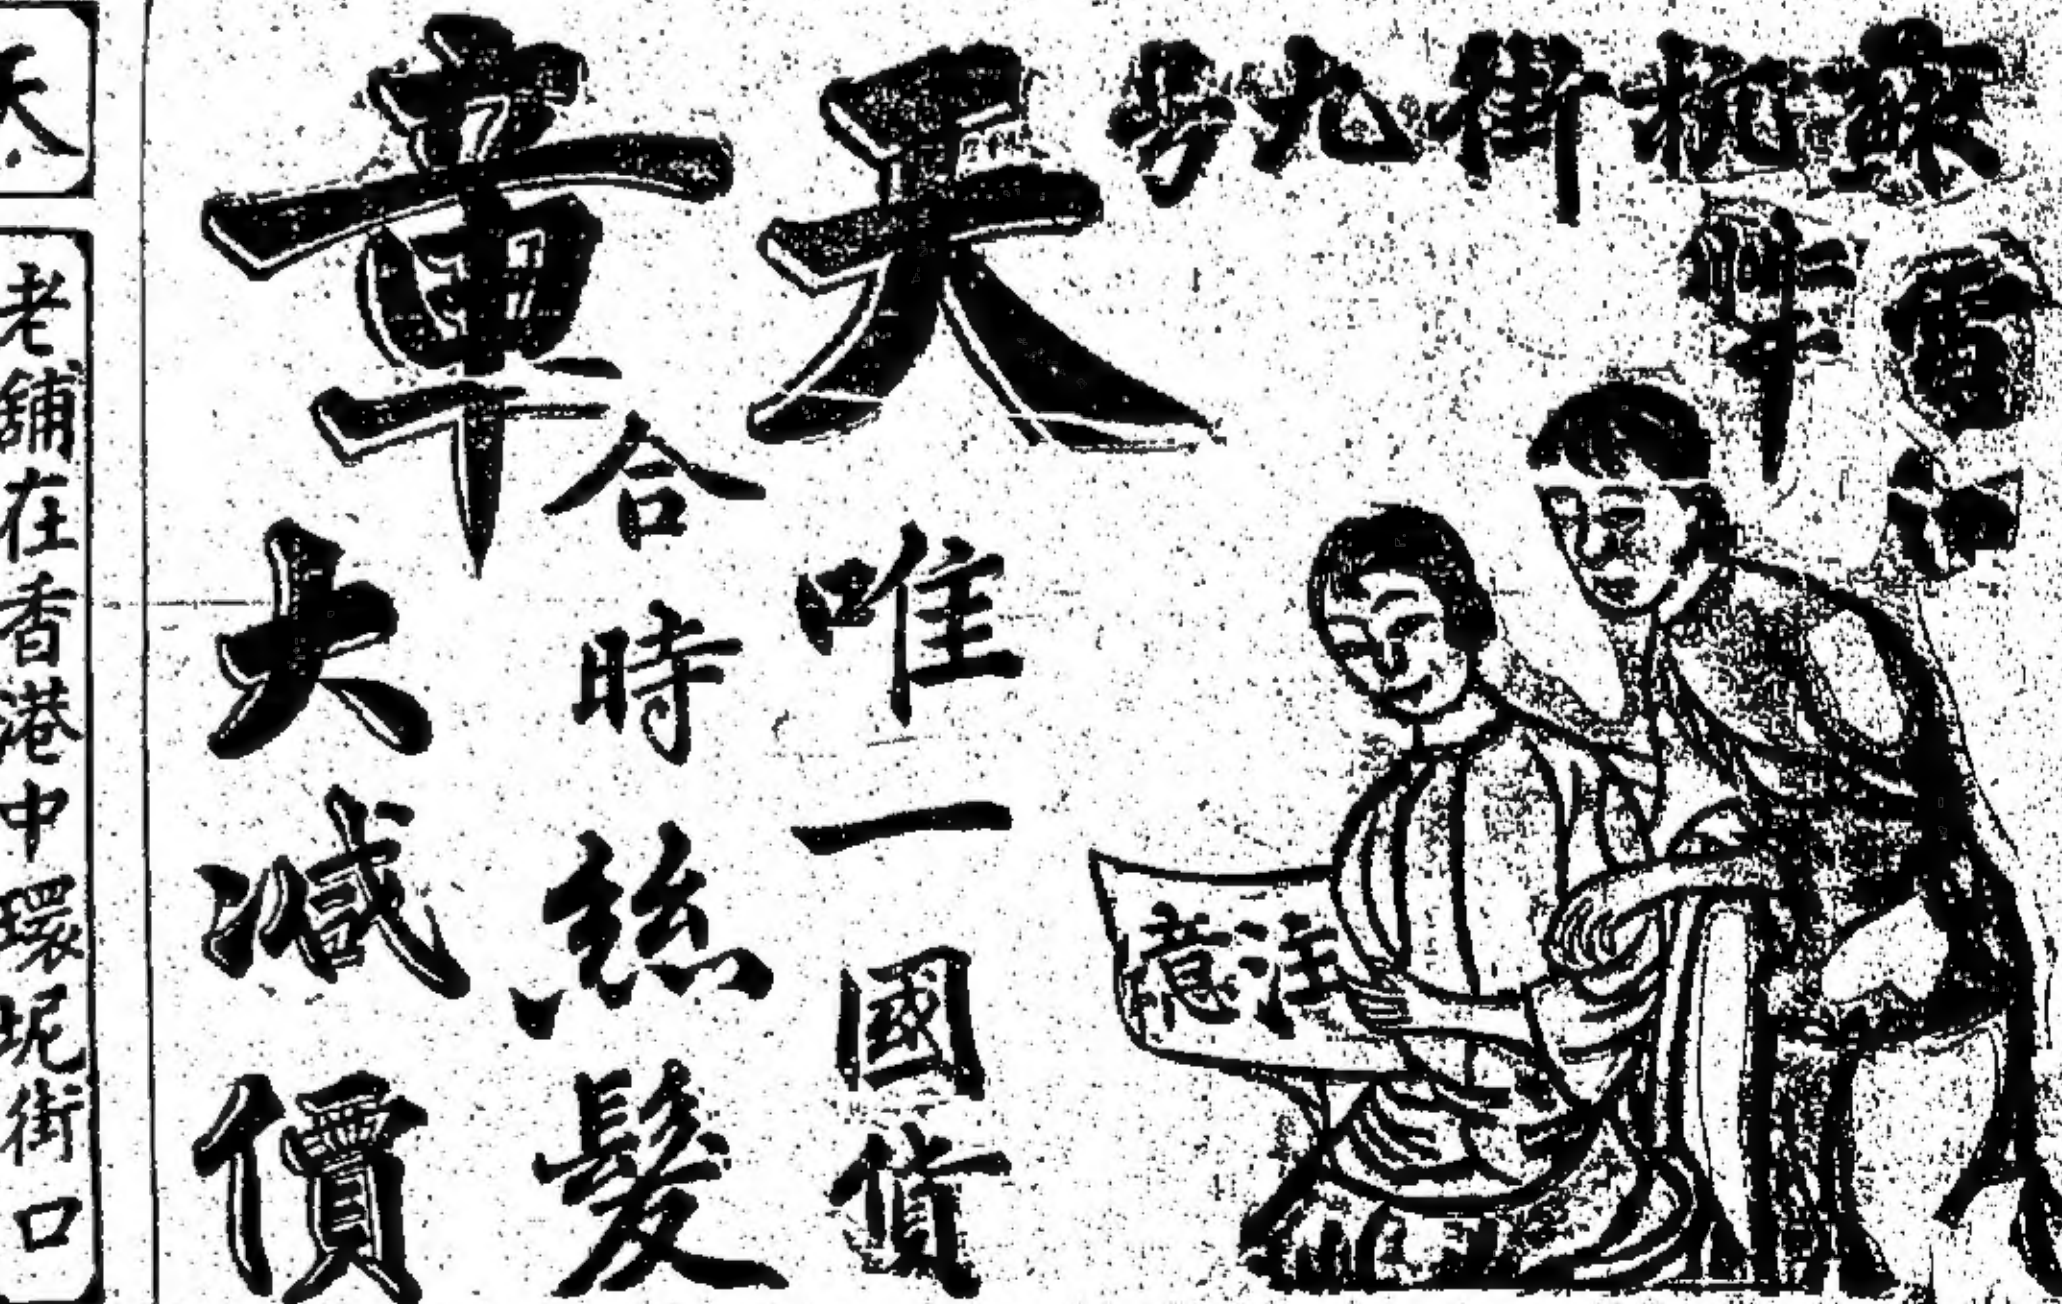 蘇杭街九号
天章
唯一國貨
合時絲髮
大減價
注意
天
老舖在香港中環坭街口